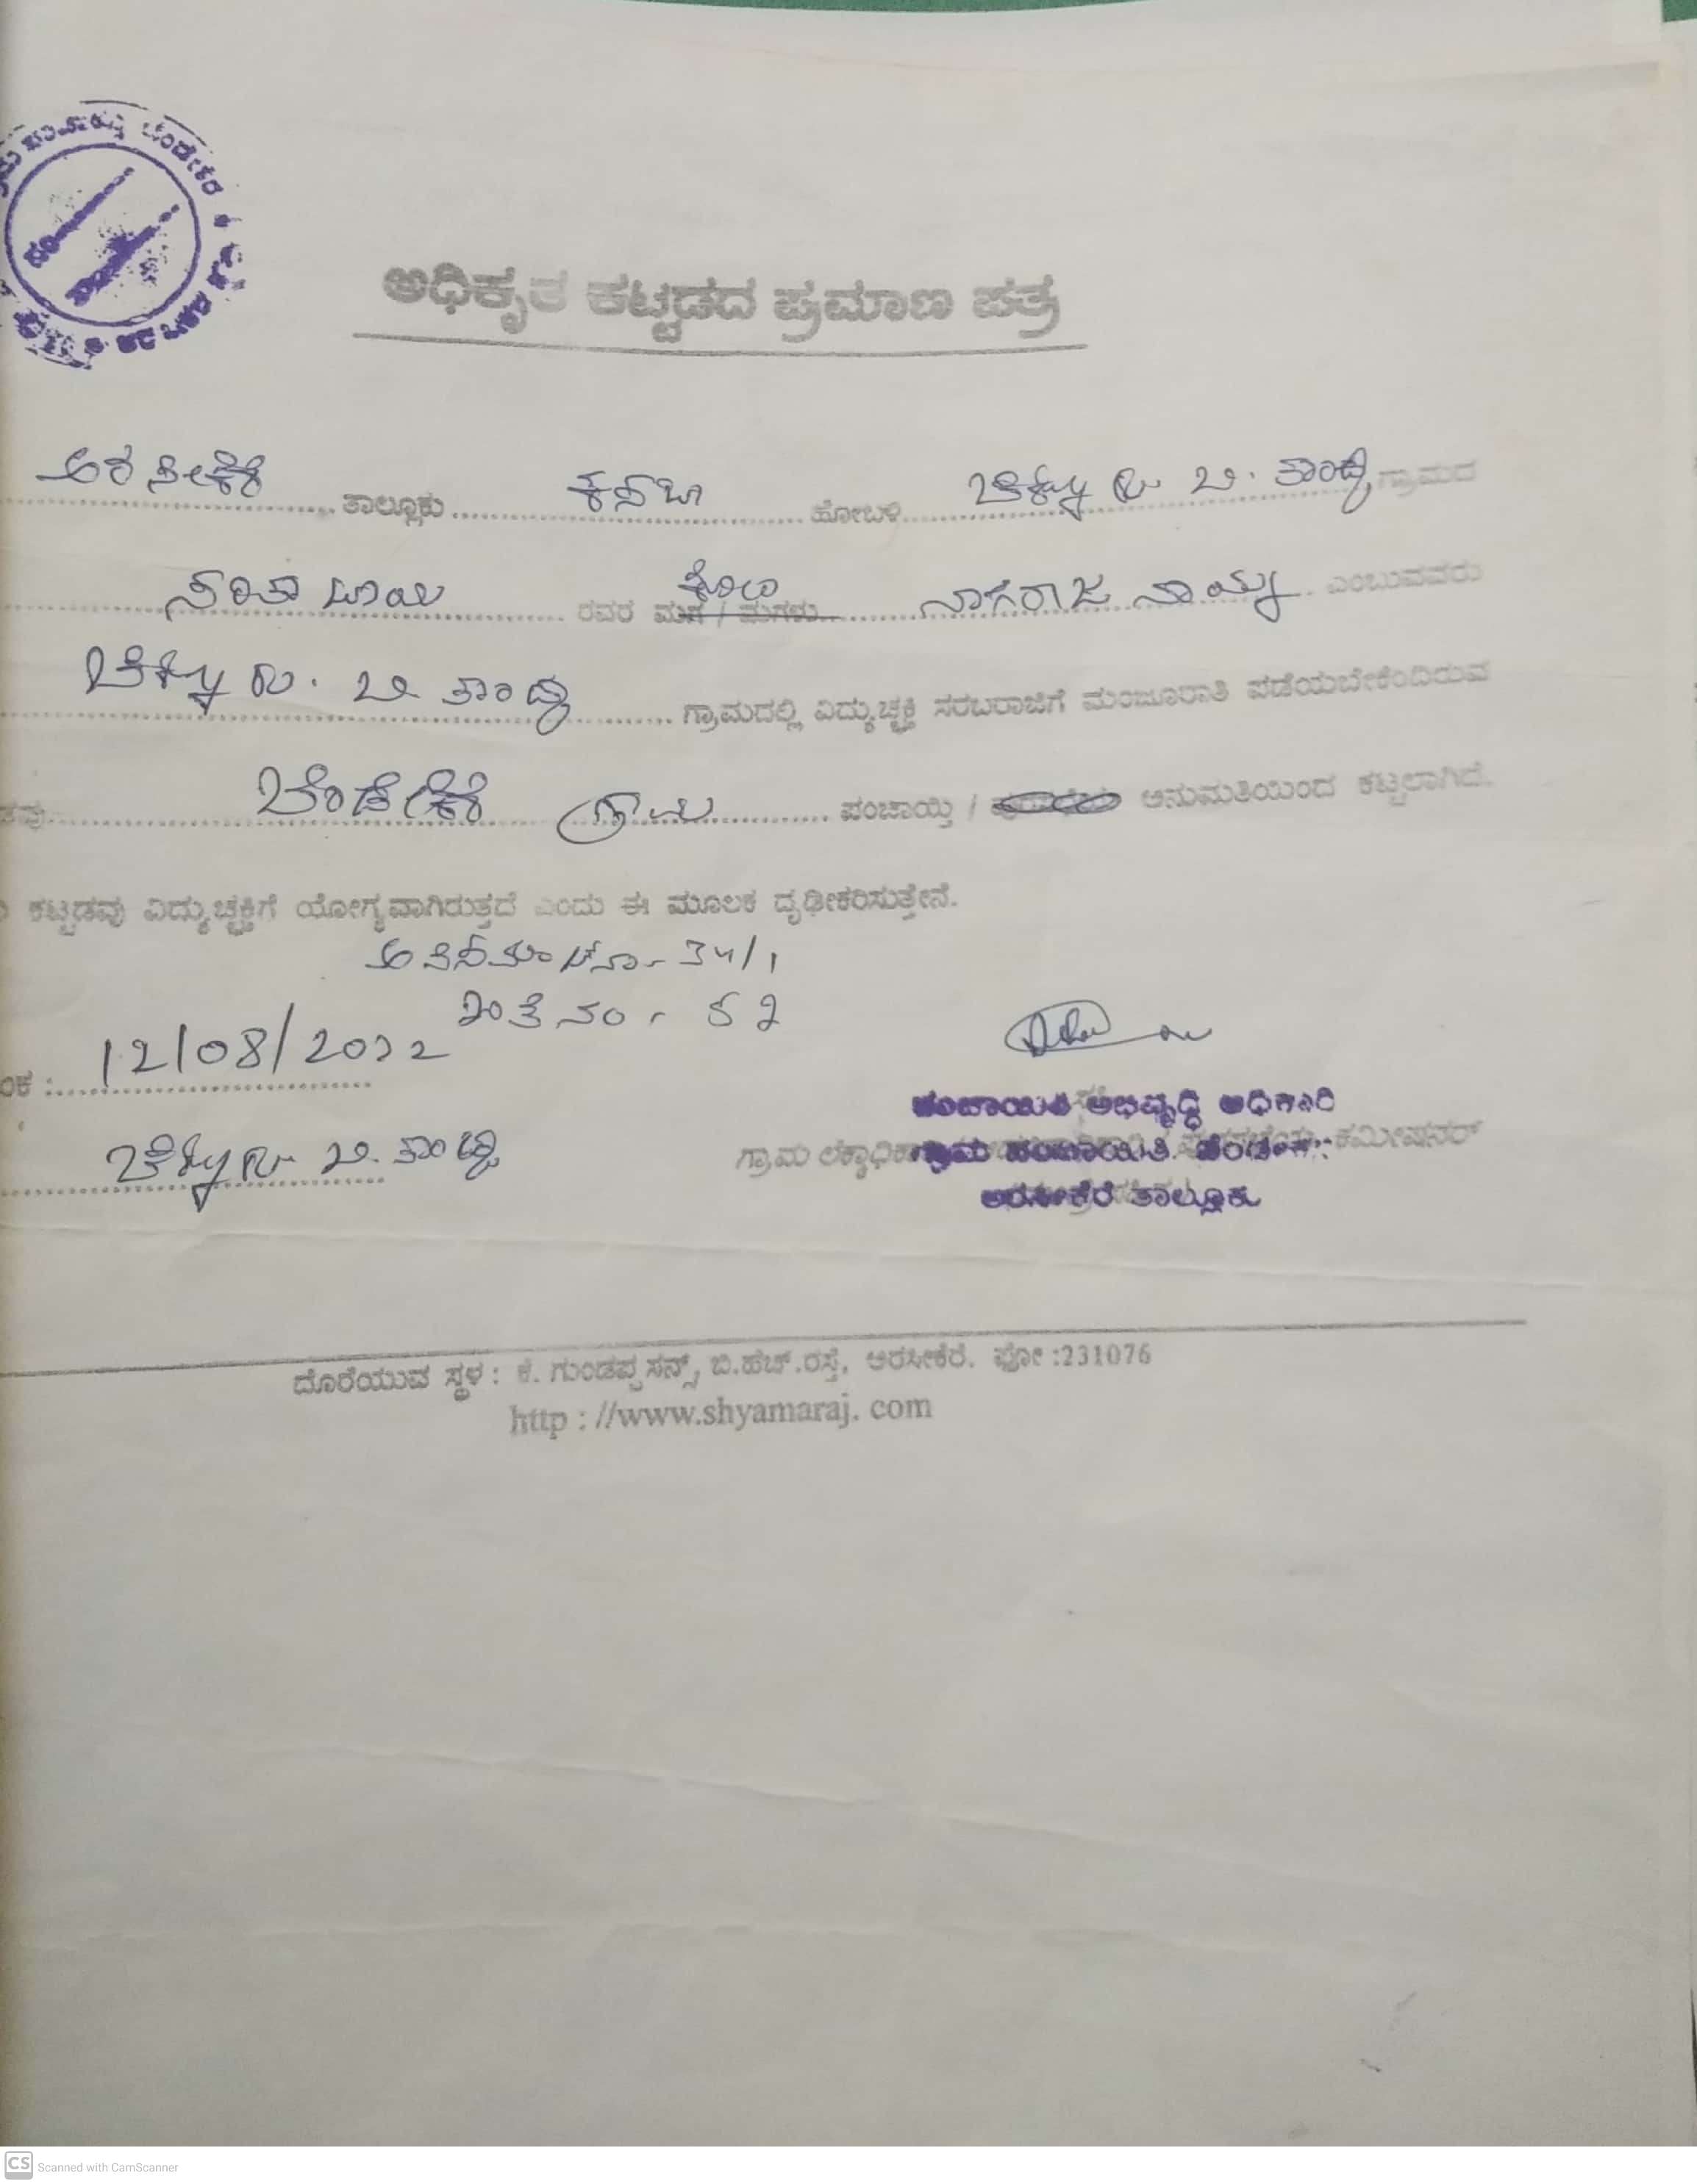 ಅಧಿಕೃತ ಕಟ್ಟಡದ ಪ್ರಮಾಣ ಪತ್ರ
ಅರಸೀಕೆರೆ ತಾಲ್ಲೂಕು ಕಸಬಾ ಹೋಬಳಿ ಬಿ. ತಾಂಡ್ಯ ಗ್ರಾಮದ
ಸರಿತಾ ಬಾಯಿ ರವರ ಮಗ / ಮಗಳು ಕೋಂ ನಾಗರಾಜ ನಾಯ್ಕ ಎಂಬುವವರು
ಬಿ. ತಾಂಡ್ಯ ಗ್ರಾಮದಲ್ಲಿ ವಿದ್ಯುಚ್ಛಕ್ತಿ ಸರಬರಾಜಿಗೆ ಮಂಜೂರಾತಿ ಪಡೆಯಬೇಕೆಂದಿರುವ
ಬೆಂಡೇಕೆರೆ ಗ್ರಾಮ ಪಂಚಾಯ್ತಿ / ಅನುಮತಿಯಿಂದ ಕಟ್ಟಲಾಗಿದೆ.
ಕಟ್ಟಡವು ವಿದ್ಯುಚ್ಛಕ್ತಿಗೆ ಯೋಗ್ಯವಾಗಿರುತ್ತದೆ ಎಂದು ಈ ಮೂಲಕ ದೃಢೀಕರಿಸುತ್ತೇನೆ.
34/1
ಖಾತೆ ನಂ - 52
12/08/2022
ಬಿ. ತಾಂಡ್ಯ
ಪಂಚಾಯಿತಿ ಅಭಿವೃದ್ಧಿ ಅಧಿಕಾರಿ
ಗ್ರಾಮ ಪಂಚಾಯಿತಿ ಬೆಂಡೇಕೆರೆ ಕಮೀಷನರ್
ಅರಸೀಕೆರೆ ತಾಲ್ಲೂಕು
ದೊರೆಯುವ ಸ್ಥಳ : ಕೆ. ಗುಂಡಪ್ಪ ಸನ್ಸ್, ಬಿ.ಹೆಚ್.ರಸ್ತೆ, ಅರಸೀಕೆರೆ. ಫೋ :231076
http : //www.shyamaraj. com
CS Scanned with CamScanner